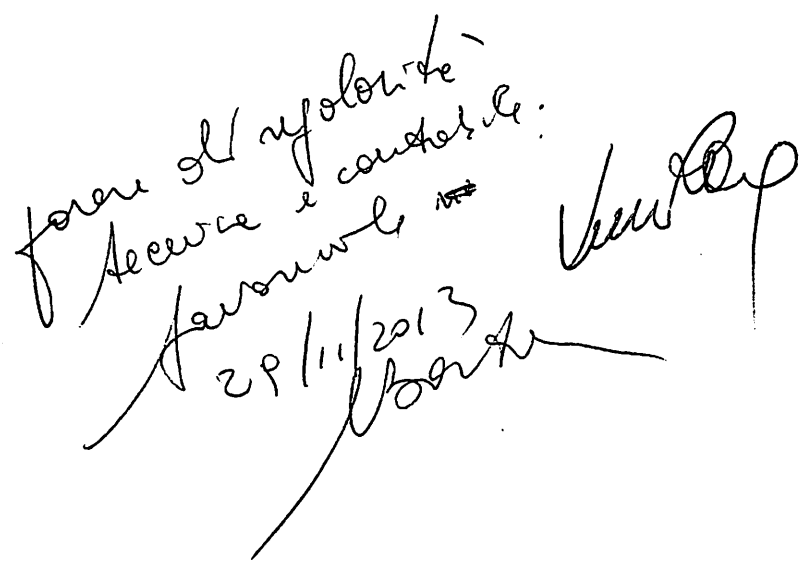 parere di regolarità
tecnica e contabile:
favorevole
29/11/2013